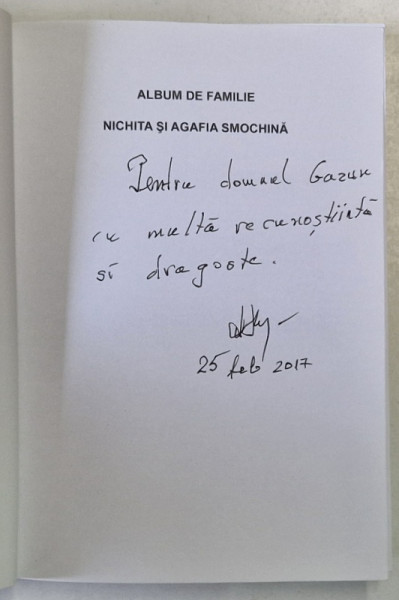 ALBUM DE FAMILIE
NICHITA ŞI AGAFIA SMOCHINĂ
Pentru domnul
cu multă recunoştiinţă
si dragoste.
25 feb 2017